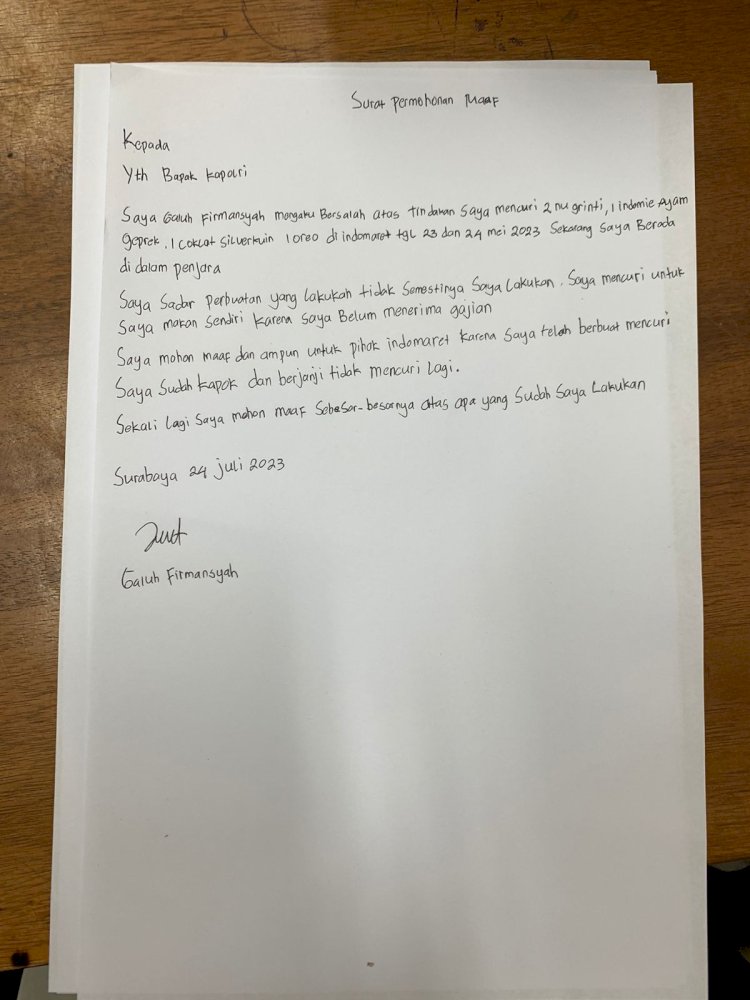 Surat Permohonan Maaf
Kepada
Yth Bapak Kapolri
Saya Galuh Firmansyah mengaku Bersalah atas tindakan Saya mencuri 2 nu grinti, 1 indomie Ayam
geprek, 1 Coklat Silverkuin 1 oreo di indomaret tgl 23 dan 24 mei 2023 Sekarang Saya Berada
di dalam penjara
Saya Sadar Perbuatan yang lakukah tidak Semestinya Saya Lakukan. Saya mencuri untuk
Saya makan Sendiri Karena Saya Belum menerima gajian
Saya mohon maaf dan ampun untuk pihak indomaret Karena Saya telah berbuat mencuri
Saya Sudah Kapok dan berjanji tidak mencuri Lagi.
Sekali Lagi Saya mohon maaf Sebesar-besarnya atas apa yang Sudah Saya Lakukan
Surabaya 24 juli 2023
Galuh Firmansyah